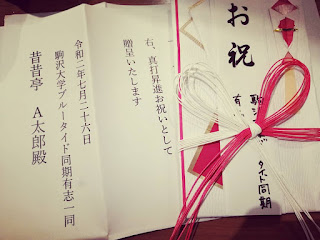 お祝
駒沢
タイド同期
右、真打昇進お祝いとして
贈呈いたします
令和二年七月二十六日
駒沢大学ブルータイド同期有志一同
昔昔亭 A太郎殿